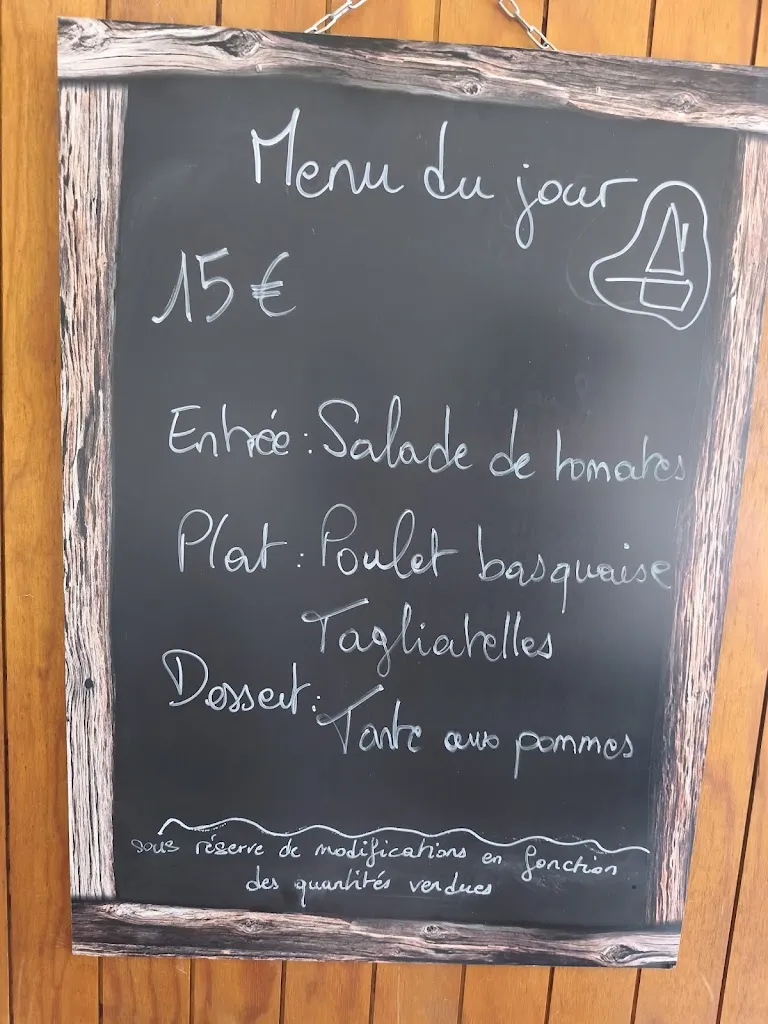 Menu du jour
15 €
Entrée : Salade de tomates
Plat : Poulet basquaise
Tagliatelles
Dessert : Tarte aux pommes
sous réserve de modifications en fonction
des quantités vendues